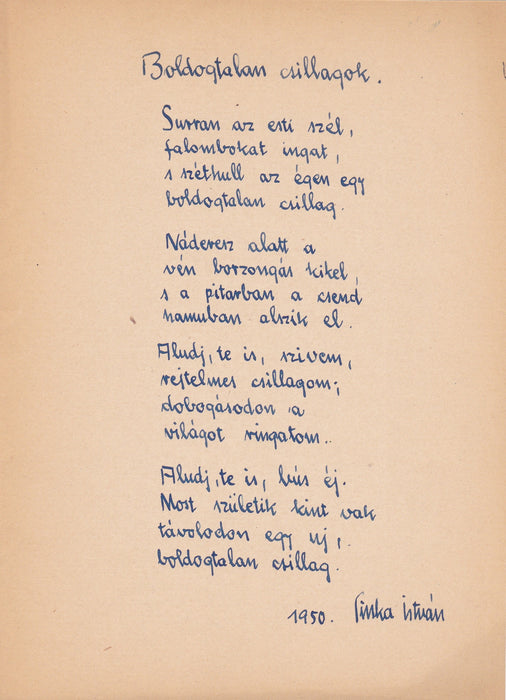 Boldogtalan csillagok.
Surran az esti szél,
falombokat ingat,
s széthull az égen egy
boldogtalan csillag.
Náderesz alatt a
vén borzongás kikel,
s a pitarban a csend
hamuban alszik el.
Aludj, te is, szivem,
rejtelmes csillagom;
dobogásodon a
világot ringatom..
Aludj, te is, bús éj.
Most születik kint vak
távolodon egy uj,
boldogtalan csillag.
1950. Sinka István